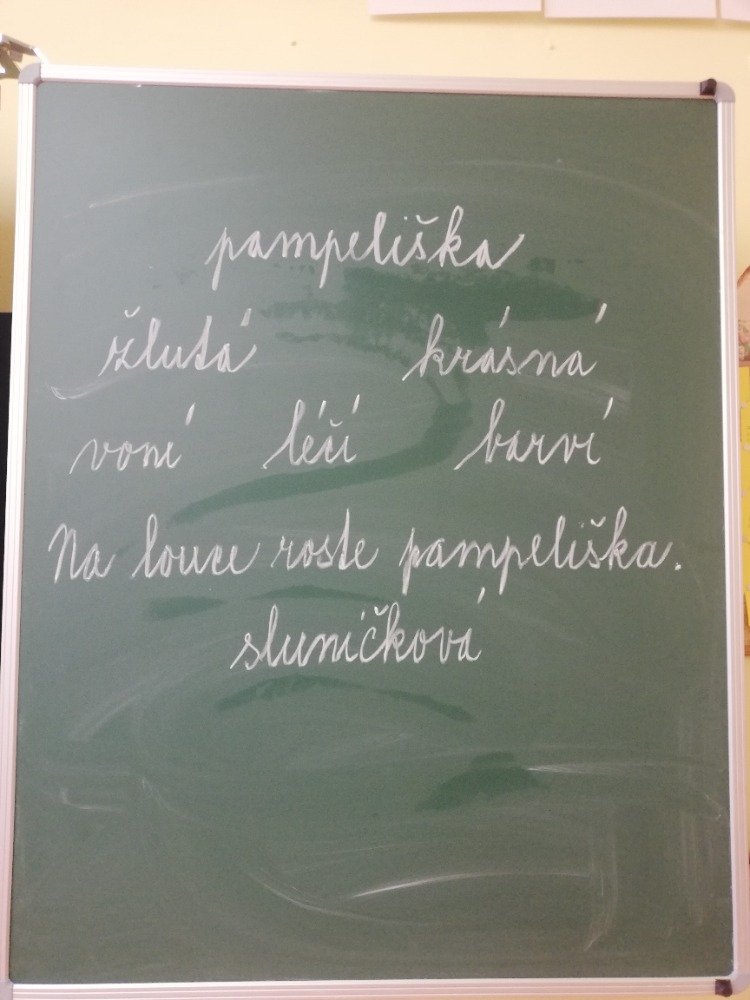 pampeliška
žlutá krásná
voní léčí barví
Na louce roste pampeliška.
sluníčková